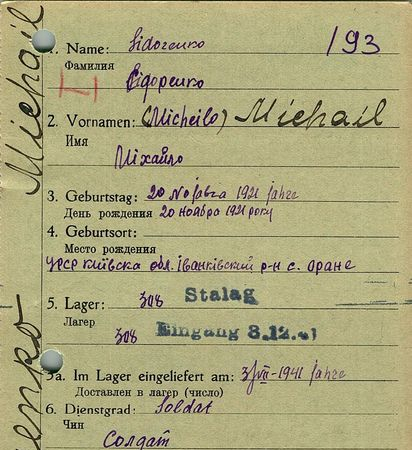 Michail
enko
1. Name: Sidorenko 193
Фамилия
Сідоренко
2. Vornamen: (Micheilo) Michail
Имя
Міхайло
3. Geburtstag: 20 Nojabra 1921 jahre
День рождения 20 ноября 1921 року
4. Geburtsort:
Место рождения
УРСР київска обл. іванківский р-н с. Оране
5. Lager: 308 Stalag
Лагер 308 Eingang 8.12.41
5a. Im Lager eingeliefert am: 3/VII-1941 jahre
Доставлен в лагер (число)
6. Dienstgrad: Soldat
Чин
Солдат